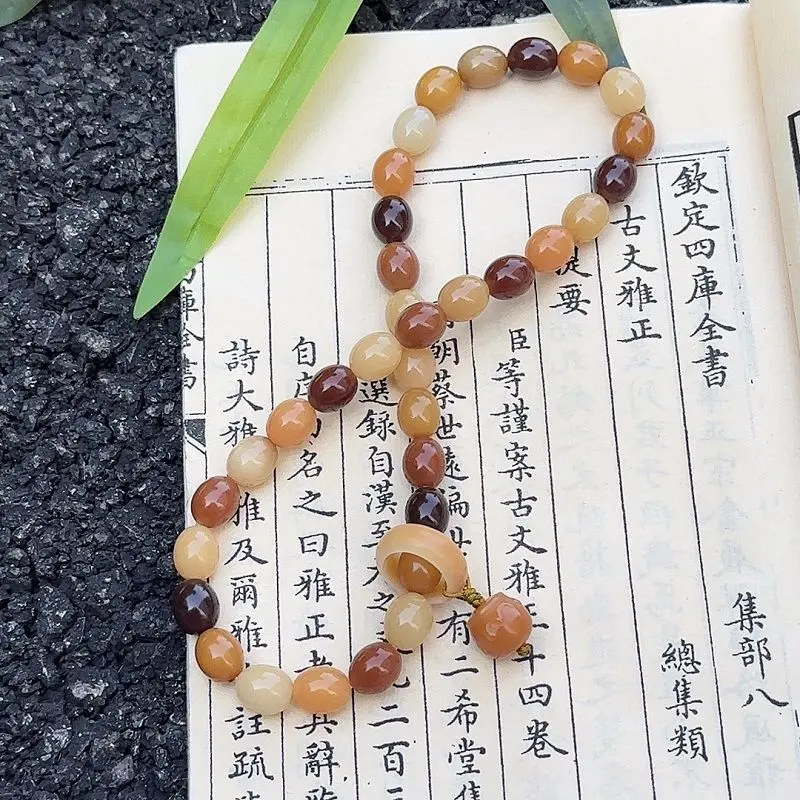 欽定四庫全書 集部八
古文雅正 總集類
提要
臣等謹案古文雅正十四卷
朝蔡世遠編世 有二希堂集
選錄自漢至 之 二百三
自序 名之曰雅正者其辭
詩大雅 雅及爾雅 註疏
庫全書